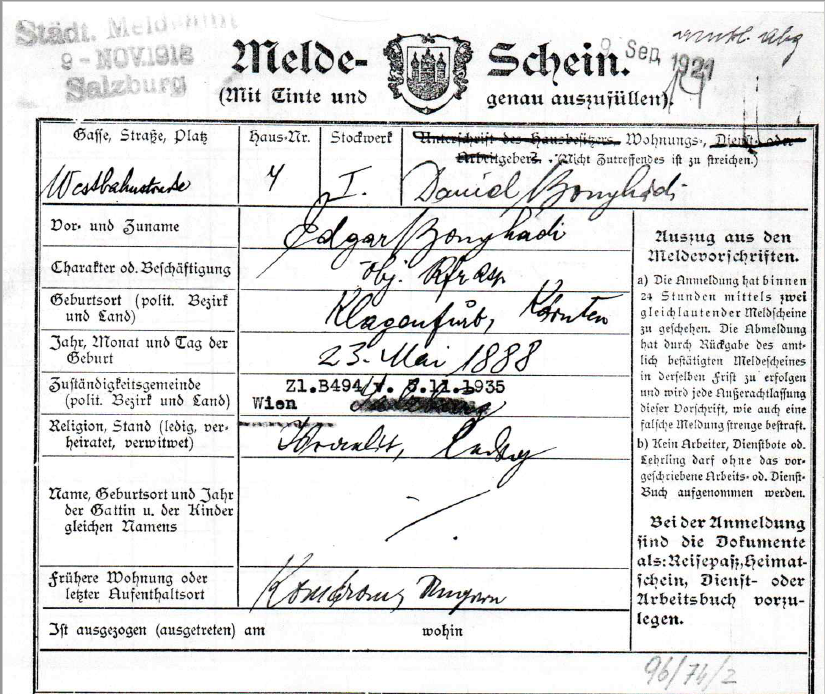 Städt. Meldeamt
9 - NOV. 1918
Salzburg
9 Sep. 1921
Melde- Schein.
(Mit Tinte und genau auszufüllen).
Gasse, Straße, Platz
Haus-Nr.
Stockwerk
Unterschrift des Hausbesitzers, Wohnungs-, Dienst- oder
Arbeitgebers. (Nicht Zutreffendes ist zu streichen.)
Westbahnstraße
I.
Daniel Bonyhadi
Vor- und Zuname
Edgar Bonyhadi
Charakter od. Beschäftigung
Geburtsort (polit. Bezirk
und Land)
Klagenfurt, Kärnten
Jahr, Monat und Tag der
Geburt
23. Mai 1888
Zuständigkeitsgemeinde
(polit. Bezirk und Land)
Zl.B494 v. 5.11.1935
Wien
Religion, Stand (ledig, ver-
heiratet, verwitwet)
ledig
Name, Geburtsort und Jahr
der Gattin u. der Kinder
gleichen Namens
Frühere Wohnung oder
letzter Aufenthaltsort
Komarom, Ungarn
Ist ausgezogen (ausgetreten) am
wohin
Auszug aus den
Meldevorschriften.
a) Die Anmeldung hat binnen
24 Stunden mittels zwei
gleichlautender Meldscheine
zu geschehen. Die Abmeldung
hat durch Rückgabe des amt-
lich bestätigten Meldescheines
in derselben Frist zu erfolgen
und wird jede Außerachtlassung
dieser Vorschrift, wie auch eine
falsche Meldung strenge bestraft.
b) Kein Arbeiter, Dienstbote od.
Lehrling darf ohne das vor-
geschriebene Arbeits- od. Dienst-
Buch aufgenommen werden.
Bei der Anmeldung
sind die Dokumente
als: Reisepaß, Heimat-
schein, Dienst- oder
Arbeitsbuch vorzu-
legen.
96/74/2